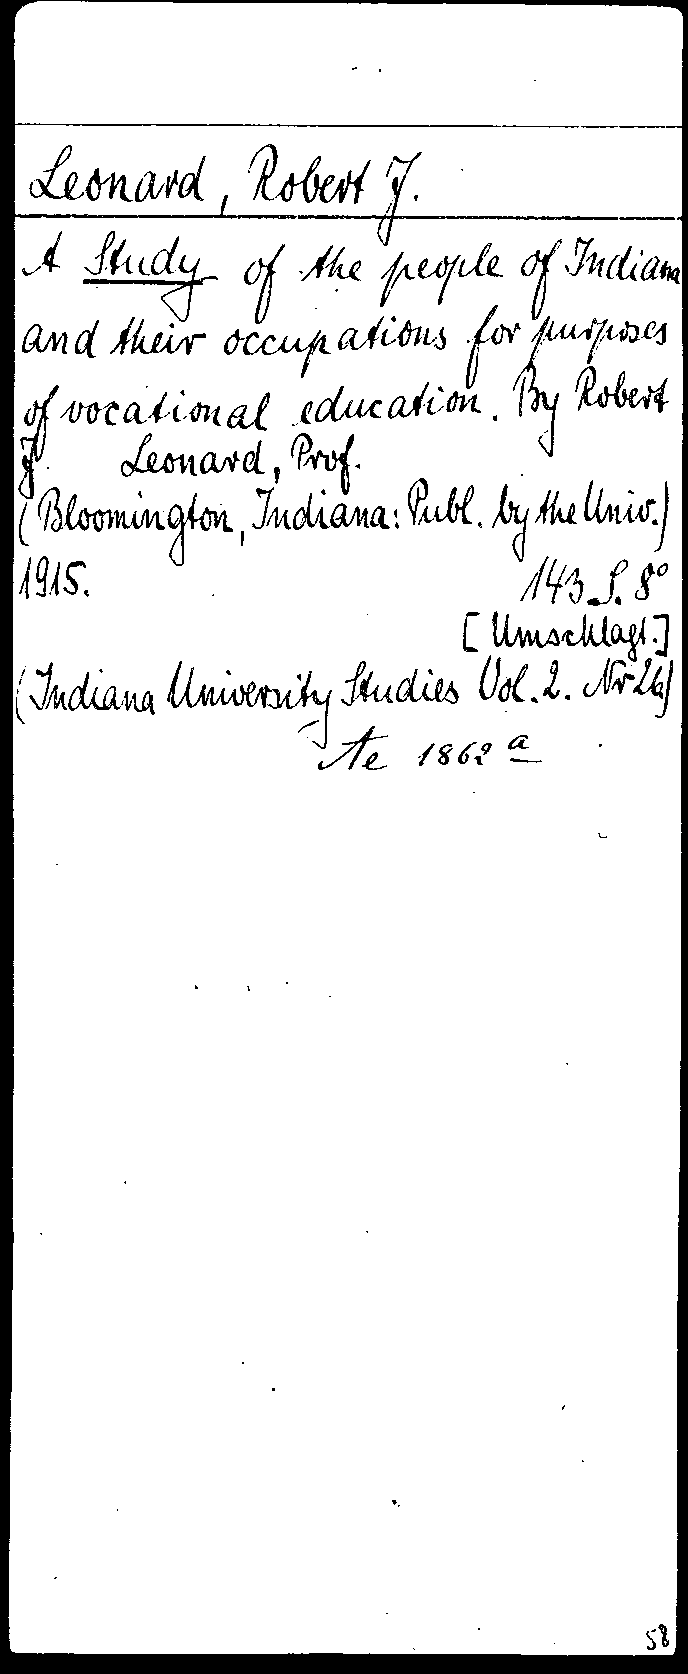 Leonard, Robert J.
A Study of the people of Indiana
and their occupations for purposes
of vocational education. By Robert
J. Leonard, Prof.
(Bloomington, Indiana: Publ. by the Univ.)
1915. 143 S. 8°
[Umschlagt.]
(Indiana University Studies Vol. 2. Nr 26)
Ae 1862 a
58